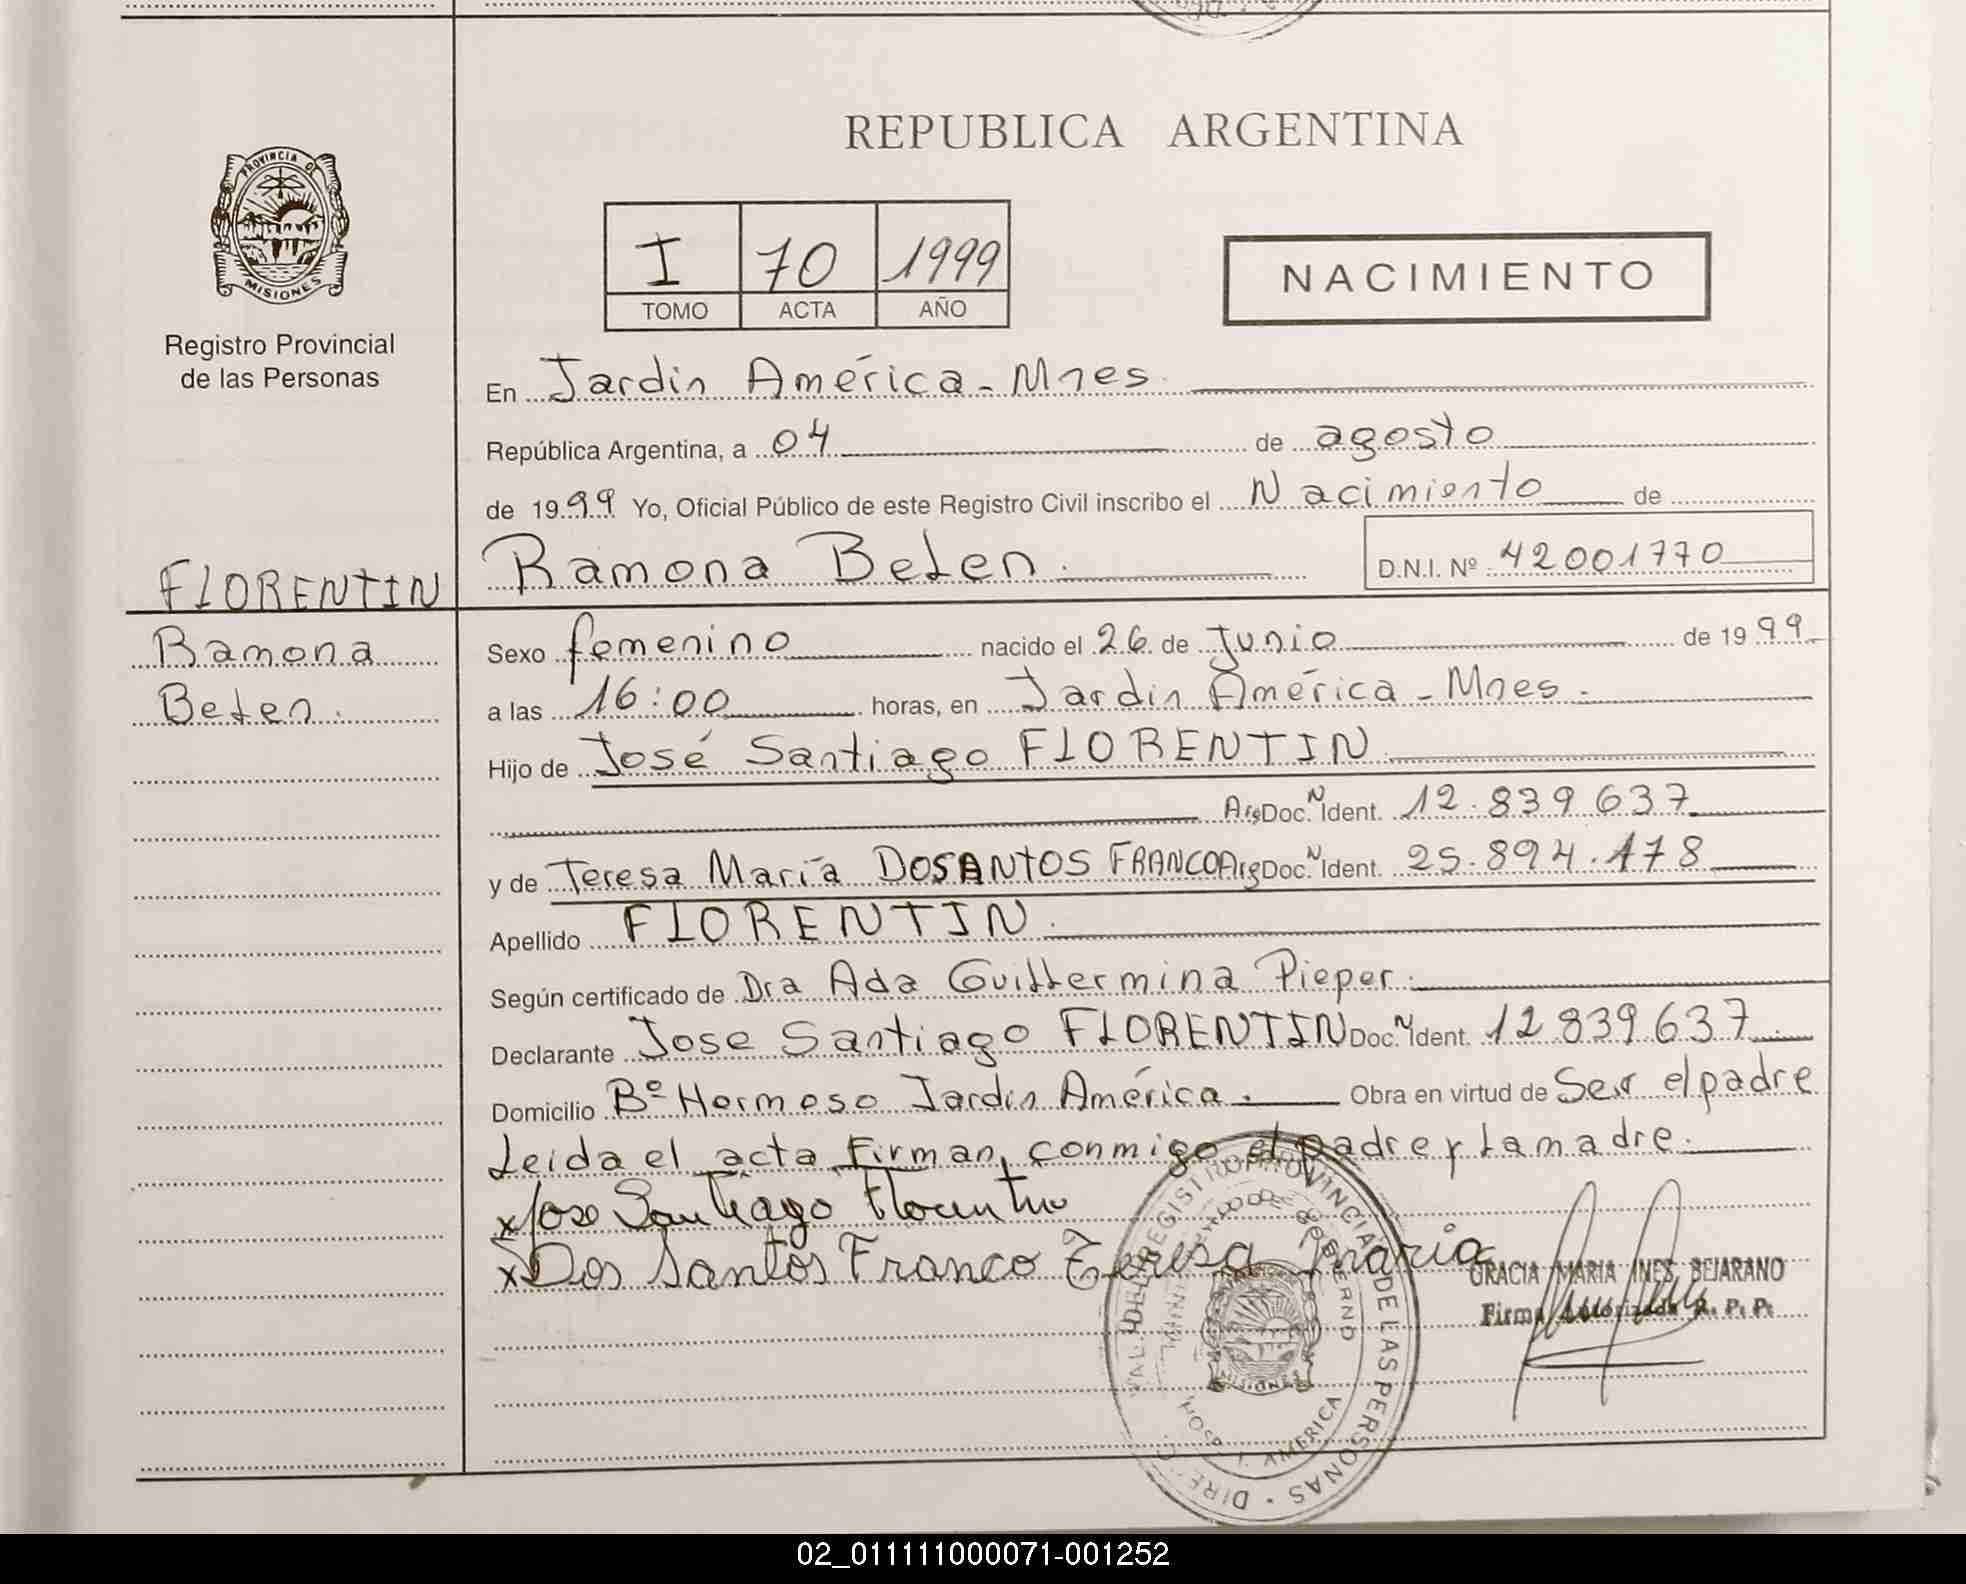 REPUBLICA ARGENTINA
PROVINCIA DE
MISIONES
Registro Provincial
de las Personas
I 70 1999
TOMO ACTA AÑO
NACIMIENTO
En Jardín América - Mnes.
República Argentina, a 04 de agosto
de 1999 Yo, Oficial Público de este Registro Civil inscribo el Nacimiento de
Ramona Belen. D.N.I. Nº 42001770
FLORENTIN
Ramona
Belen.
Sexo femenino nacido el 26 de Junio de 1999
a las 16:00 horas, en Jardín América - Mnes.
Hijo de José Santiago FLORENTIN
Arg Doc. N Ident. 12.839.637
y de Teresa María DOSANTOS FRANCO Arg Doc. N Ident. 25.894.178
Apellido FLORENTIN.
Según certificado de Dra Ada Guillermina Pieper.
Declarante Jose Santiago FLORENTIN Doc. N Ident. 12.839.637
Domicilio Bº Hermoso Jardín América. Obra en virtud de Ser el padre
Leida el acta firman conmigo el padre y la madre.
x Jose Santiago Florentin
x Dos Santos Franco Teresa maria
GRACIA MARIA INES BEJARANO
Firma Autorizada R. P. P.
REGISTRO PROVINCIAL DE LAS PERSONAS
AMERICA
MISIONES
02_011111000071-001252